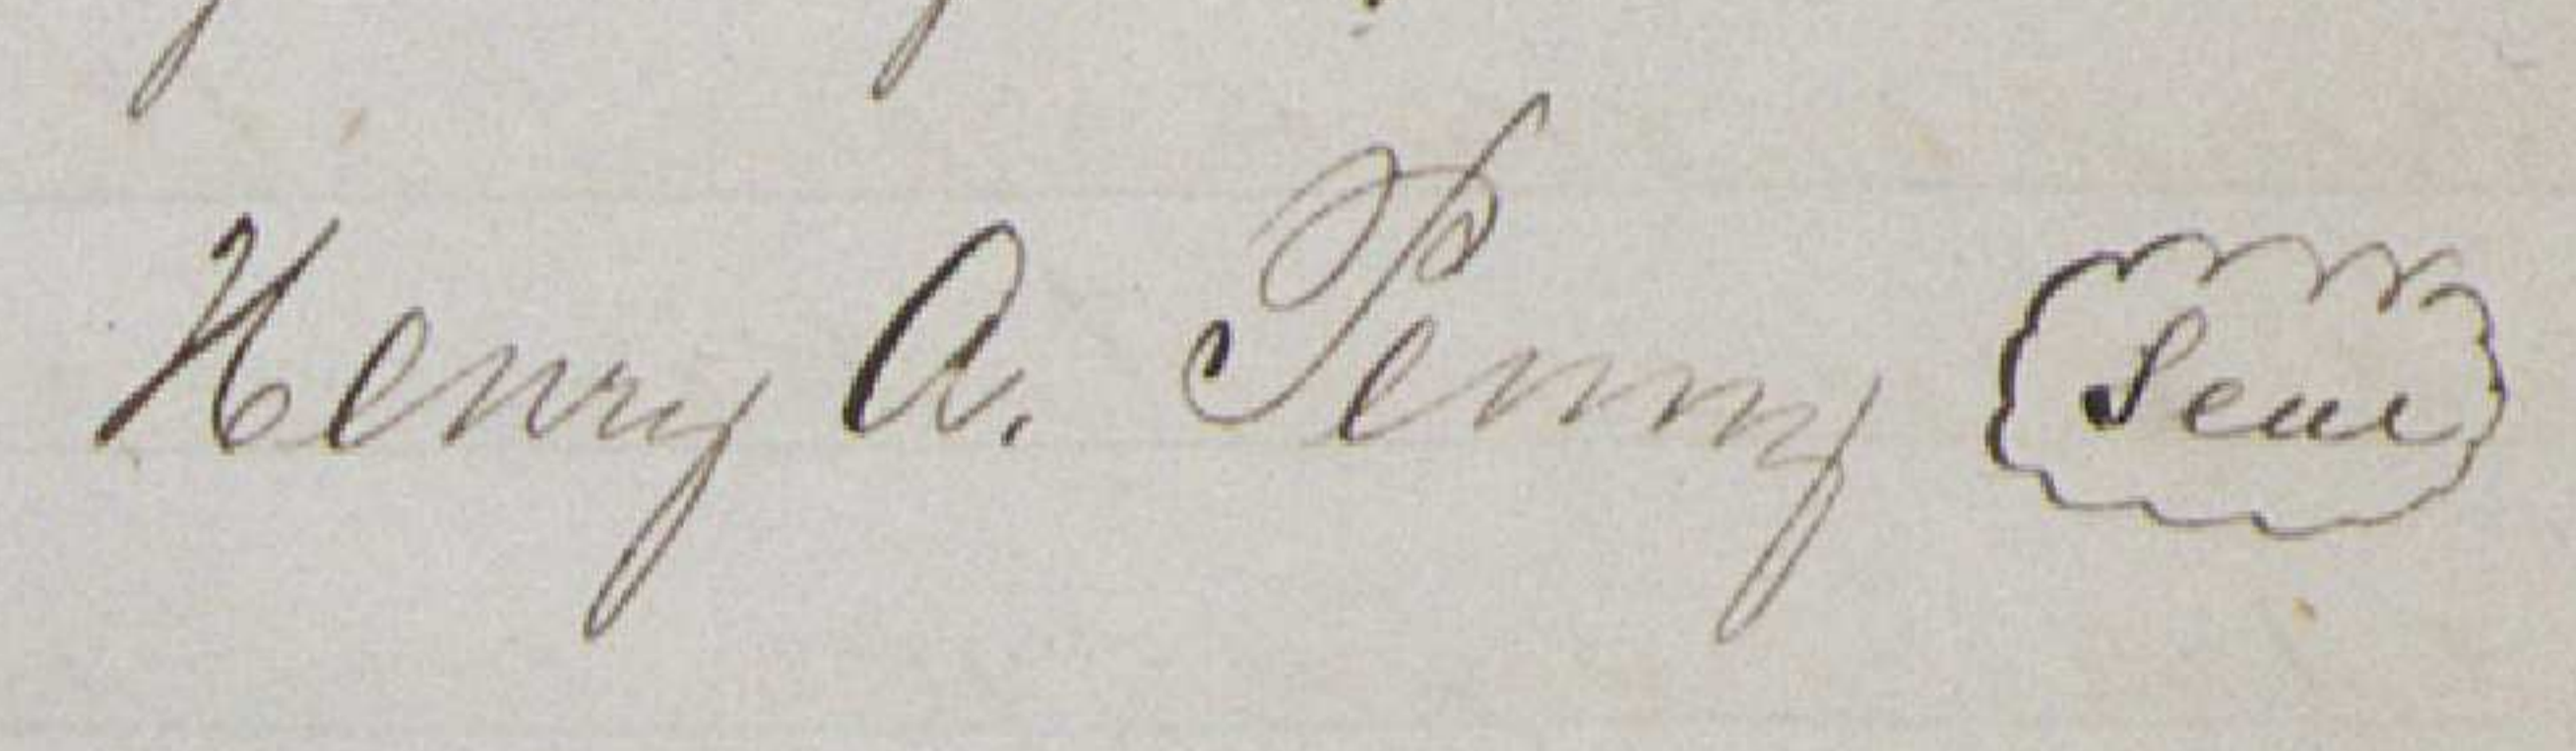 Henry A. Penny Seal